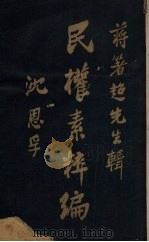 蔣箸超先生輯
民權素粹編
沈恩孚